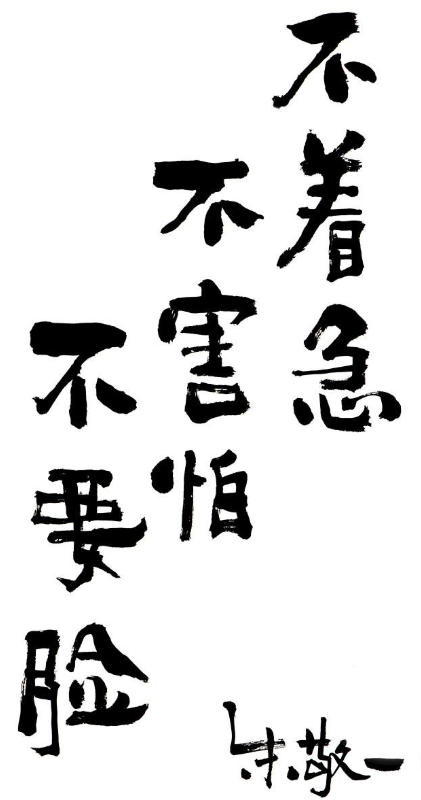 不着急
不害怕
不要脸
朱敬一